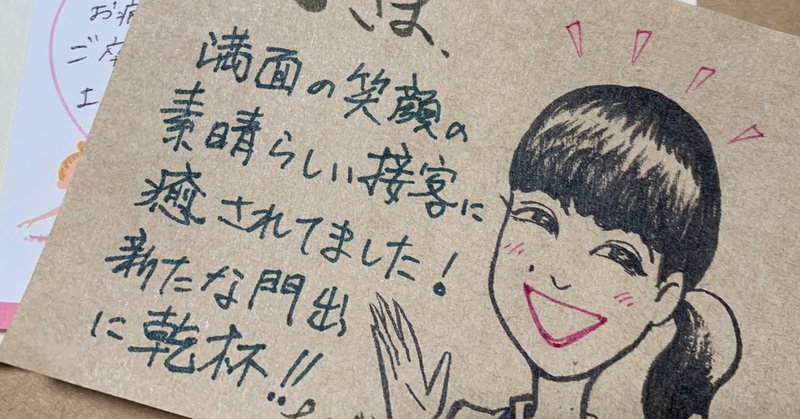 お疲
ご卒
は、
満面の笑顔の
素晴らしい接客に
癒されてました!
新たな門出
に乾杯!!